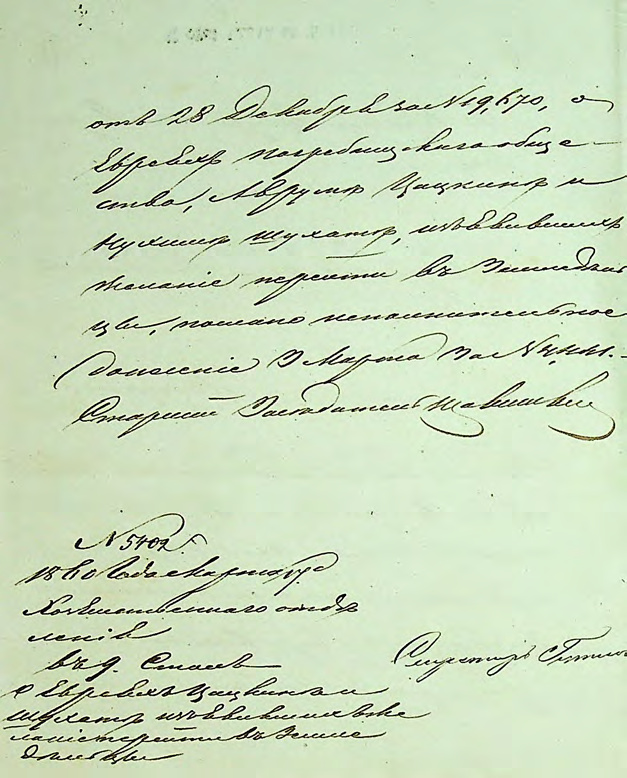 отъ 28 Декабря за N 19,670, о
Евреяхъ Погребищскаго обще-
ства, Аврумѣ Цацкинѣ и
Нухимѣ Шухатѣ, изъявившихъ
желаніе перейти въ Земледѣль
цы, послано исполнительное
донесеніе 3 Марта за N
Старшій Засѣдатель
N 5402
1860 Года Марта
Хозяйственнаго отдѣ
ленія
въ 9. Столъ
о Евреяхъ Цацкинѣ и
Шухатѣ изъявившихъ же
ланіе перейти въ Земле
дѣльцы
Секретарь